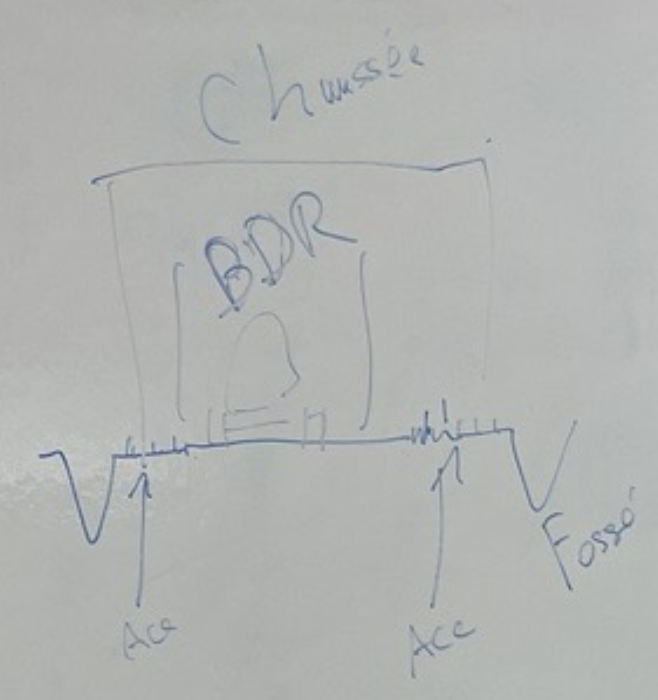 Chaussée
BDR
Acc
Acc
Fossé